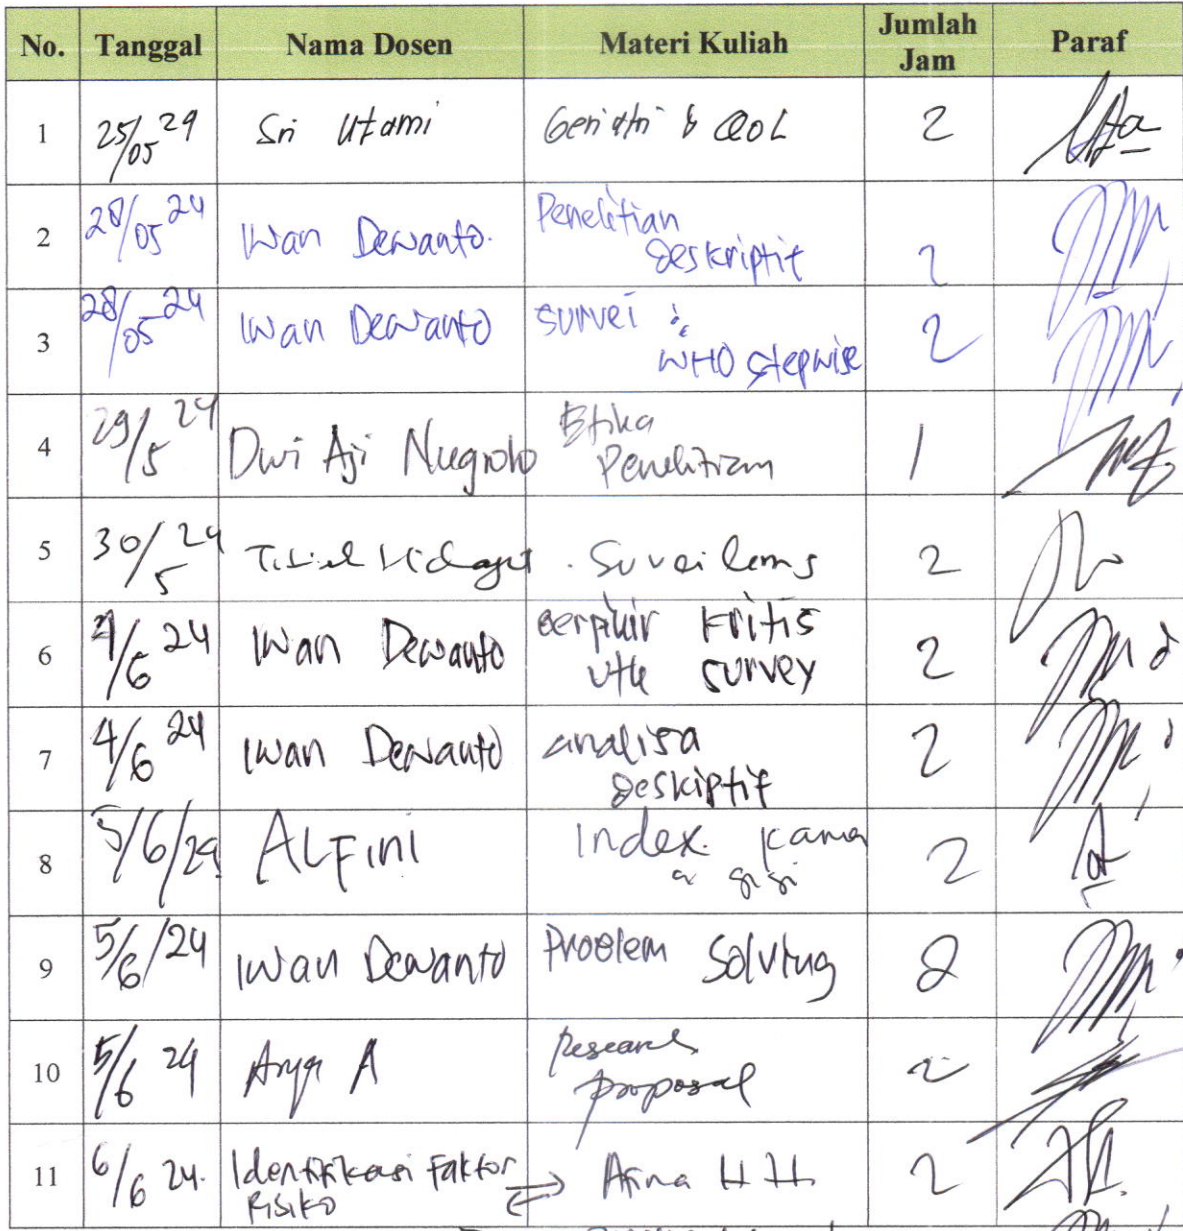 No. Tanggal Nama Dosen Materi Kuliah Jumlah Jam Paraf
1 25/05 24 Sri Utami Geriatri & QOL 2
2 28/05 24 Iwan Dewanto. Penelitian deskriptif 2
3 28/05 24 Iwan Dewanto survei : WHO stepwise 2
4 29/5 24 Dwi Aji Nugroho Etika Penelitian 1
5 30/5 24 Hidayat . Surveilans 2
6 4/6 24 Iwan Dewanto berpikir kritis utk survey 2
7 4/6 24 Iwan Dewanto analisa deskiptif 2
8 5/6/24 ALFini Index. gigi 2
9 5/6/24 Iwan Dewanto Problem Solving 2
10 5/6 24 Arya A Research proposal 2
11 6/6 24. Identifikasi Faktor Risiko Afina H H. 2